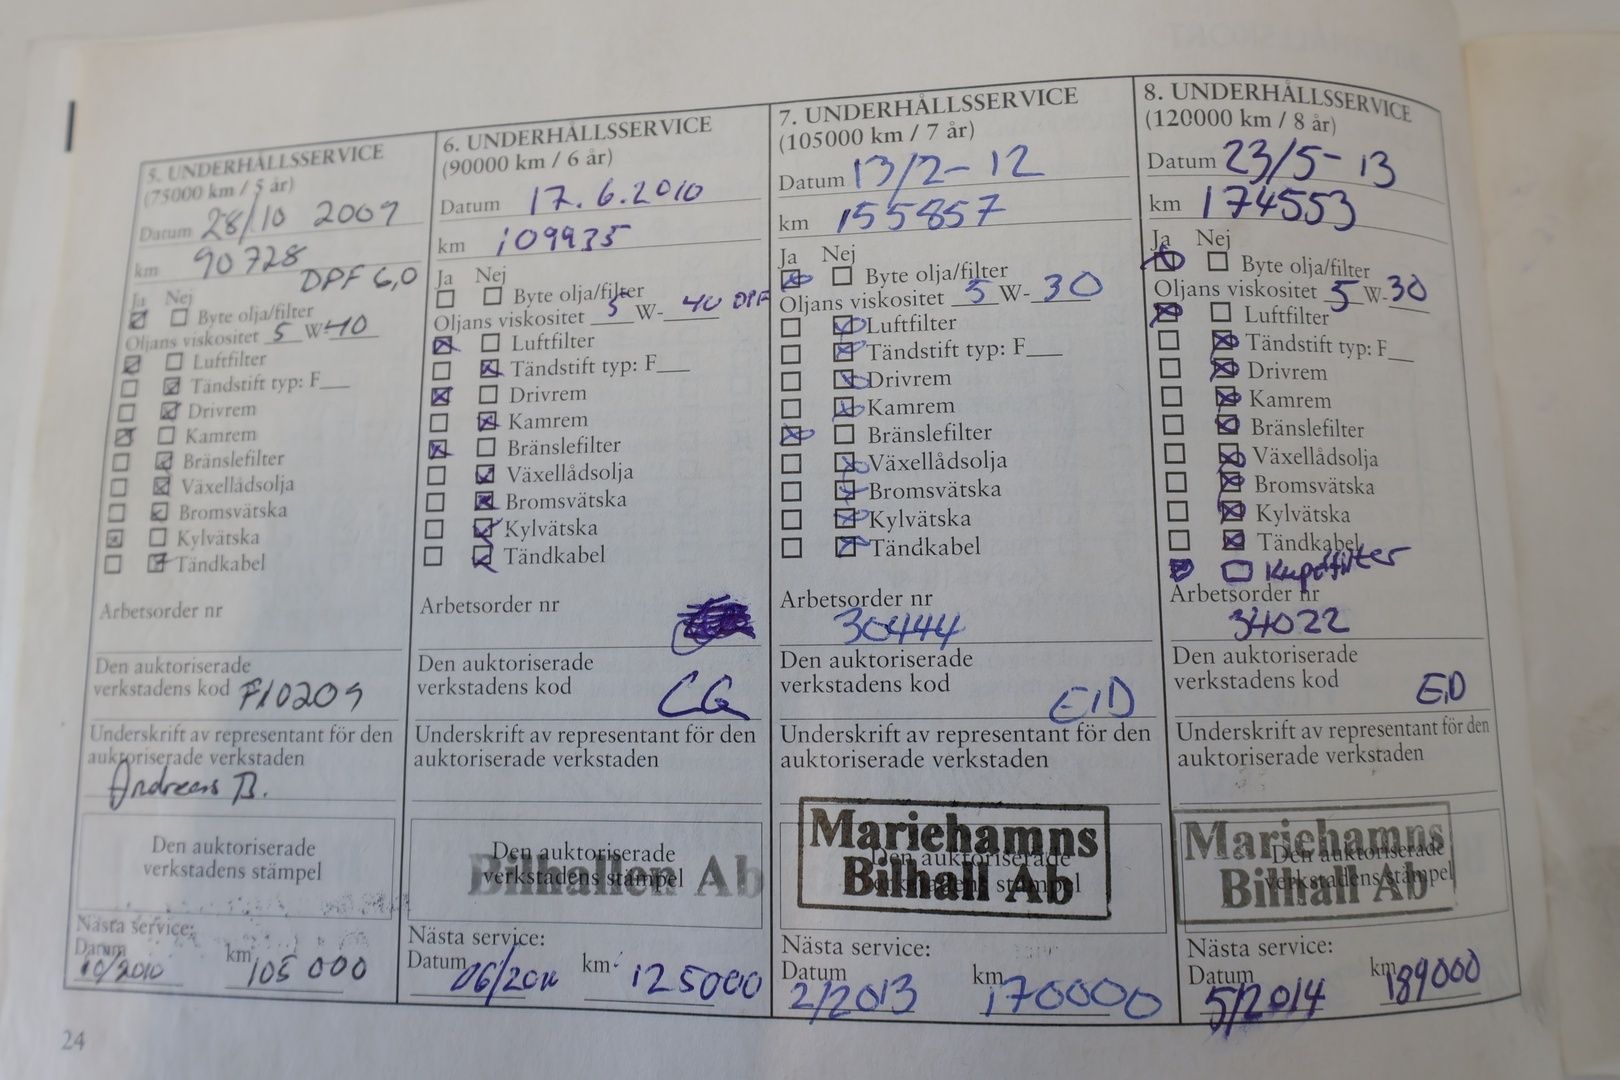 5. UNDERHÅLLSSERVICE
(75000 km / 5 år)
Datum 28/10 2009
km 90728
DPF 6,0
Ja Nej
Byte olja/filter
Oljans viskositet 5 W-40
Luftfilter
Tändstift typ: F
Drivrem
Kamrem
Bränslefilter
Växellådsolja
Bromsvätska
Kylvätska
Tändkabel
Arbetsorder nr
Den auktoriserade
verkstadens kod F10209
Underskrift av representant för den
auktoriserade verkstaden
Andreas B.
Den auktoriserade
verkstadens stämpel
Nästa service:
Datum 10/2010 km 105 000
6. UNDERHÅLLSSERVICE
(90000 km / 6 år)
Datum 17.6.2010
km 109935
Ja Nej
Byte olja/filter
Oljans viskositet 5 W- 40 DPF
Luftfilter
Tändstift typ: F
Drivrem
Kamrem
Bränslefilter
Växellådsolja
Bromsvätska
Kylvätska
Tändkabel
Arbetsorder nr
Den auktoriserade
verkstadens kod CG
Underskrift av representant för den
auktoriserade verkstaden
Den auktoriserade
verkstadens stämpel
Bilhallen Ab
Nästa service:
Datum 06/2011 km 125000
7. UNDERHÅLLSSERVICE
(105000 km / 7 år)
Datum 13/2-12
km 155857
Ja Nej
Byte olja/filter
Oljans viskositet 5 W-30
Luftfilter
Tändstift typ: F
Drivrem
Kamrem
Bränslefilter
Växellådsolja
Bromsvätska
Kylvätska
Tändkabel
Arbetsorder nr
30444
Den auktoriserade
verkstadens kod EID
Underskrift av representant för den
auktoriserade verkstaden
Mariehamns
Bilhall Ab
Den auktoriserade
verkstadens stämpel
Nästa service:
Datum 2/2013 km 170000
8. UNDERHÅLLSSERVICE
(120000 km / 8 år)
Datum 23/5-13
km 174553
Ja Nej
Byte olja/filter
Oljans viskositet 5 W-30
Luftfilter
Tändstift typ: F
Drivrem
Kamrem
Bränslefilter
Växellådsolja
Bromsvätska
Kylvätska
Tändkabel
Arbetsorder nr
34022
Den auktoriserade
verkstadens kod EID
Underskrift av representant för den
auktoriserade verkstaden
Mariehamns
Bilhall Ab
Den auktoriserade
verkstadens stämpel
Nästa service:
Datum 5/2014 km 189000
24